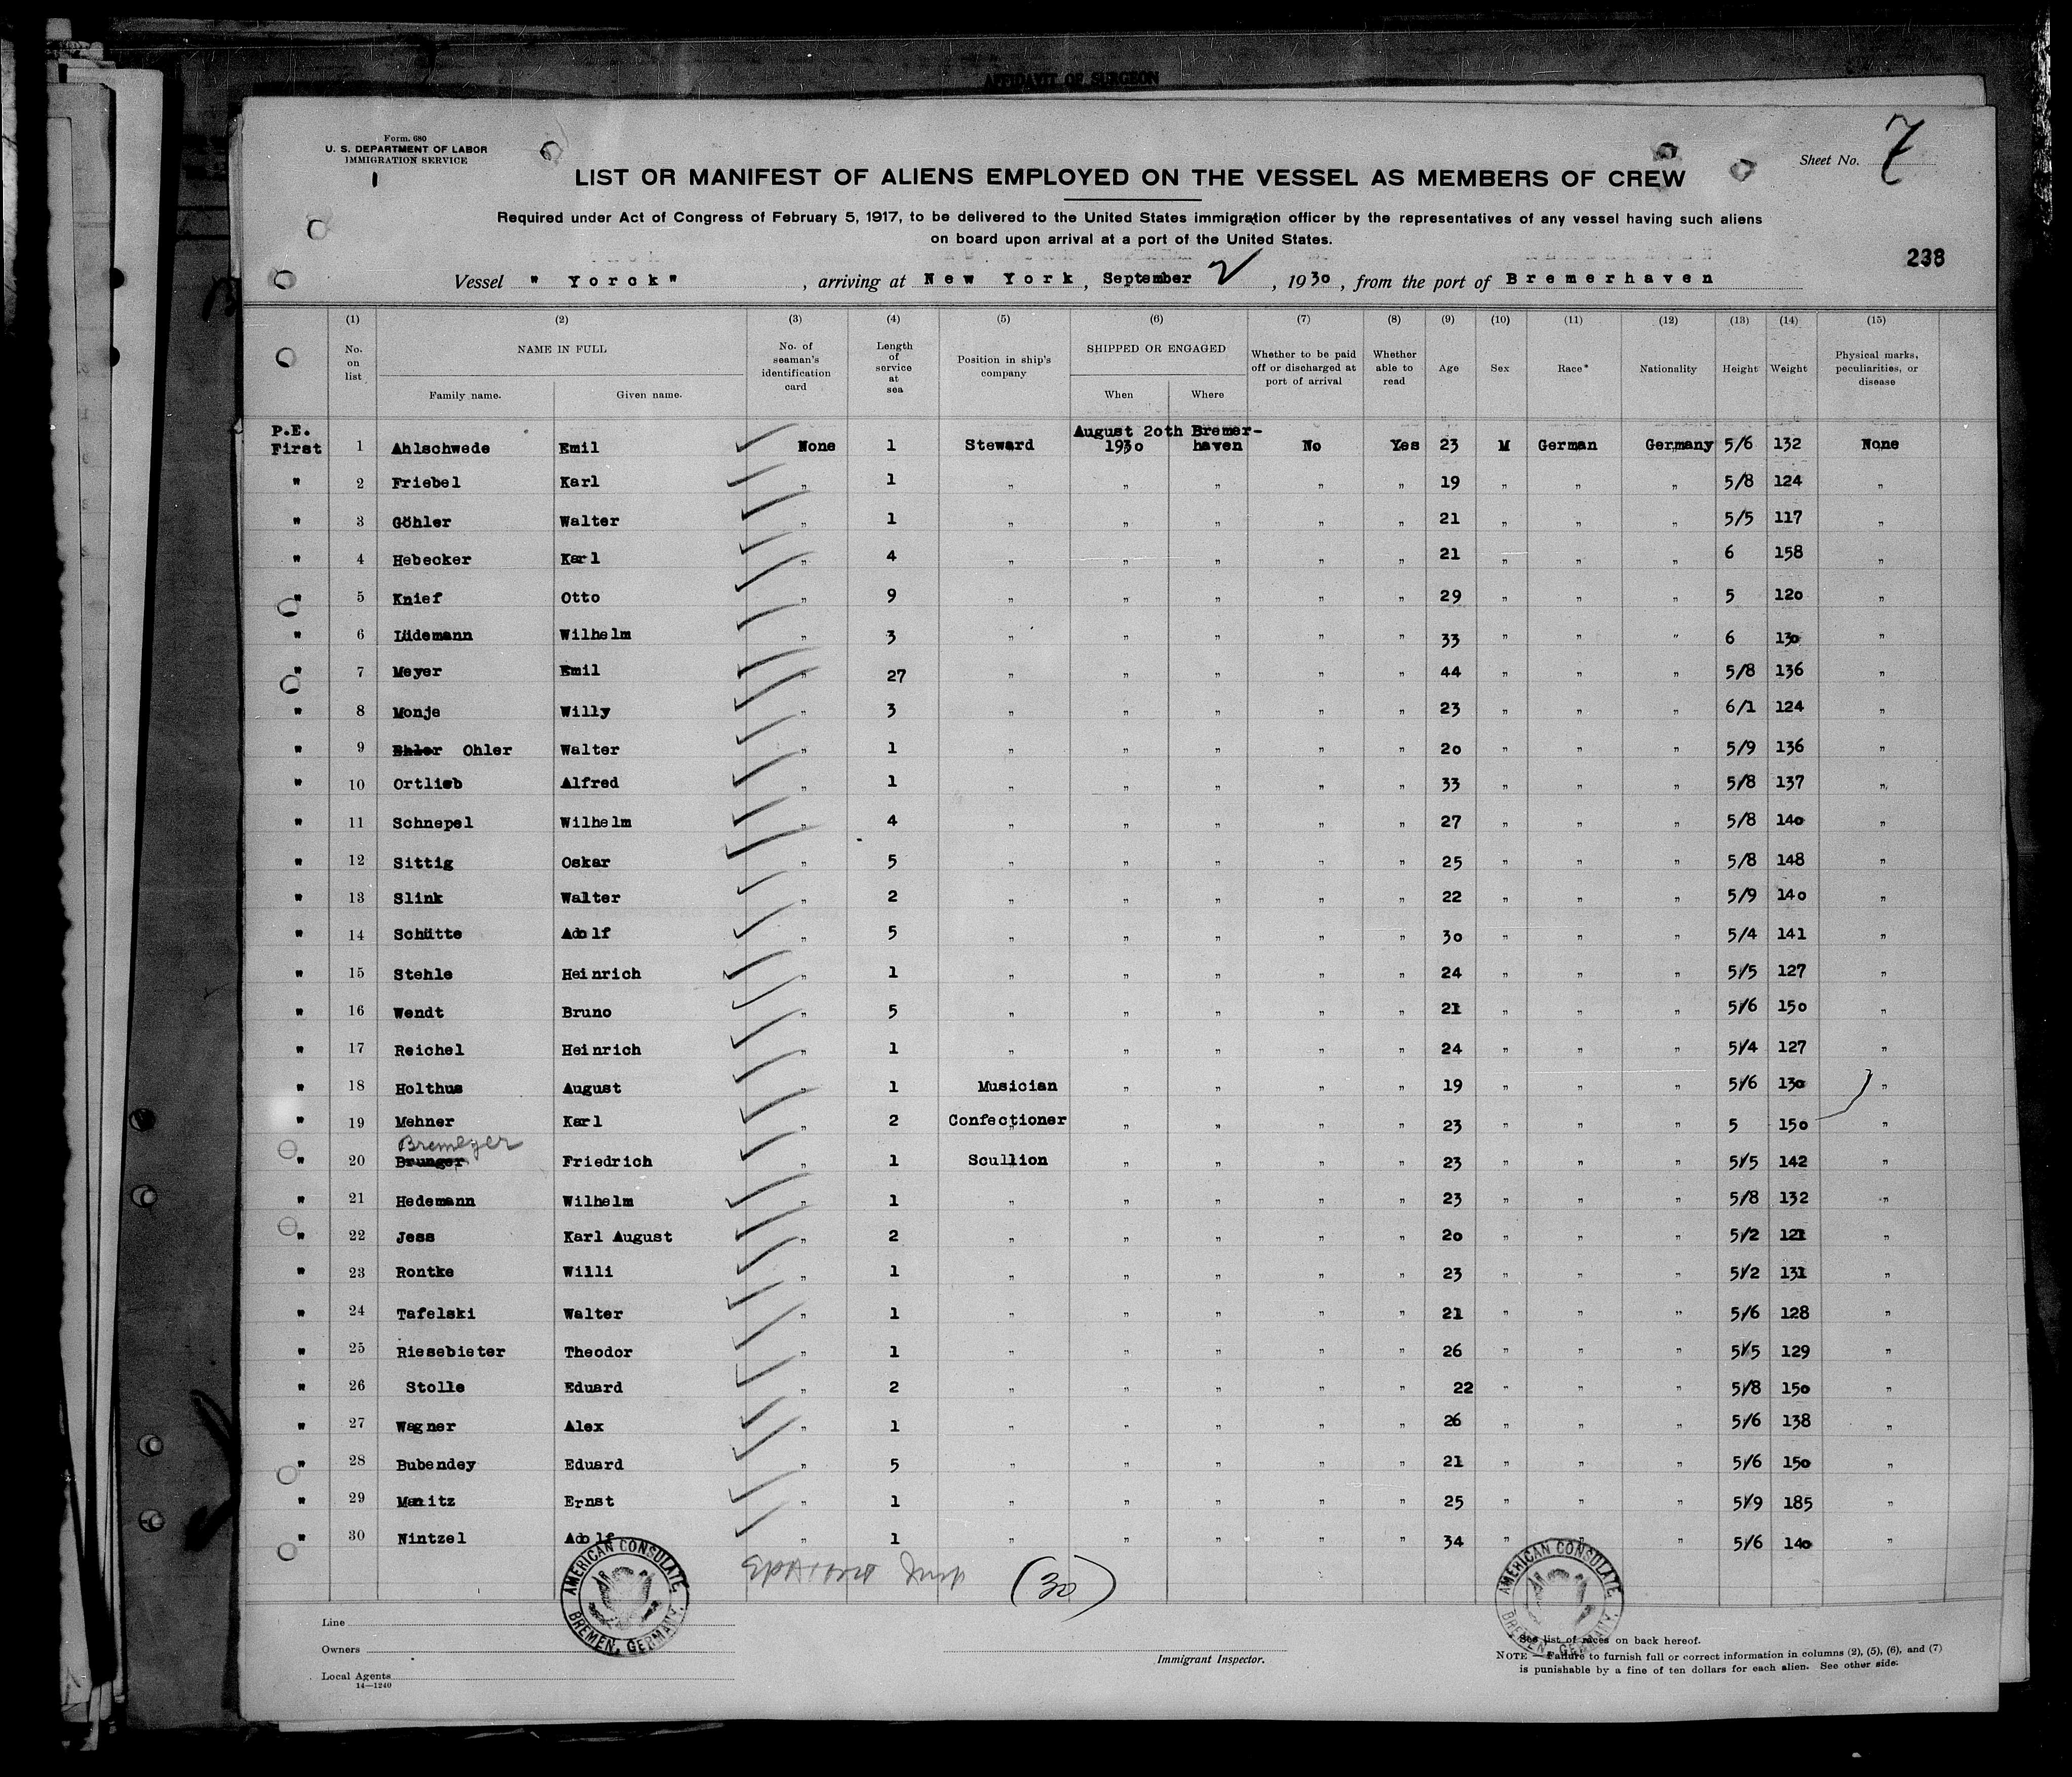 AFFIDAVIT OF SURGEON
Form. 680
U. S. DEPARTMENT OF LABOR
IMMIGRATION SERVICE
Sheet No. 7
LIST OR MANIFEST OF ALIENS EMPLOYED ON THE VESSEL AS MEMBERS OF CREW
Required under Act of Congress of February 5, 1917, to be delivered to the United States immigration officer by the representatives of any vessel having such aliens
on board upon arrival at a port of the United States.
238
Vessel " Yorck" , arriving at New York, September 2 , 1930 , from the port of Bremerhaven
(1) (2) (3) (4) (5) (6) (7) (8) (9) (10) (11) (12) (13) (14) (15)
No. on list NAME IN FULL Family name. Given name. No. of seaman's identification card Length of service at sea Position in ship's company SHIPPED OR ENGAGED When Where Whether to be paid off or discharged at port of arrival Whether able to read Age Sex Race* Nationality Height Weight Physical marks, peculiarities, or disease
P.E. August 20th Bremer-
First 1 Ahlschwede Emil None 1 Steward 1930 haven No Yes 23 M German Germany 5/6 132 None
" 2 Friebel Karl " 1 " " " " " 19 " " " 5/8 124 "
" 3 Göhler Walter " 1 " " " " " 21 " " " 5/5 117 "
" 4 Hebecker Karl " 4 " " " " " 21 " " " 6 158 "
" 5 Knief Otto " 9 " " " " " 29 " " " 5 120 "
" 6 Lüdemann Wilhelm " 3 " " " " " 33 " " " 6 130 "
" 7 Meyer Emil " 27 " " " " " 44 " " " 5/8 136 "
" 8 Monje Willy " 3 " " " " " 23 " " " 6/1 124 "
" 9 Ehler Ohler Walter " 1 " " " " " 20 " " " 5/9 136 "
" 10 Ortlieb Alfred " 1 " " " " " 33 " " " 5/8 137 "
" 11 Schnepel Wilhelm " 4 " " " " " 27 " " " 5/8 140 "
" 12 Sittig Oskar " 5 " " " " " 25 " " " 5/8 148 "
" 13 Slink Walter " 2 " " " " " 22 " " " 5/9 140 "
" 14 Schütte Adolf " 5 " " " " " 30 " " " 5/4 141 "
" 15 Stehle Heinrich " 1 " " " " " 24 " " " 5/5 127 "
" 16 Wendt Bruno " 5 " " " " " 21 " " " 5/6 150 "
" 17 Reichel Heinrich " 1 " " " " " 24 " " " 5/4 127 "
" 18 Holthus August " 1 Musician " " " " 19 " " " 5/6 130 "
" 19 Mehner Karl " 2 Confectioner " " " " 23 " " " 5 150 "
Bremeyer
" 20 Brunger Friedrich " 1 Scullion " " " " 23 " " " 5/5 142 "
" 21 Hedemann Wilhelm " 1 " " " " " 23 " " " 5/8 132 "
" 22 Jess Karl August " 2 " " " " " 20 " " " 5/2 121 "
" 23 Rontke Willi " 1 " " " " " 23 " " " 5/2 131 "
" 24 Tafelski Walter " 1 " " " " " 21 " " " 5/6 128 "
" 25 Riesebieter Theodor " 1 " " " " " 26 " " " 5/5 129 "
" 26 Stolle Eduard " 2 " " " " " 22 " " " 5/8 150 "
" 27 Wagner Alex " 1 " " " " " 26 " " " 5/6 138 "
" 28 Bubendey Eduard " 5 " " " " " 21 " " " 5/6 150 "
" 29 Manitz Ernst " 1 " " " " " 25 " " " 5/9 185 "
" 30 Nintzel Adolf " 1 " " " " " 34 " " " 5/6 140 "
(30)
AMERICAN CONSULATE BREMEN, GERMANY.
AMERICAN CONSULATE BREMEN, GERMANY.
Line
Owners
Local Agents
14—1240
Immigrant Inspector.
See list of races on back hereof.
NOTE — Failure to furnish full or correct information in columns (2), (5), (6), and (7)
is punishable by a fine of ten dollars for each alien. See other side.